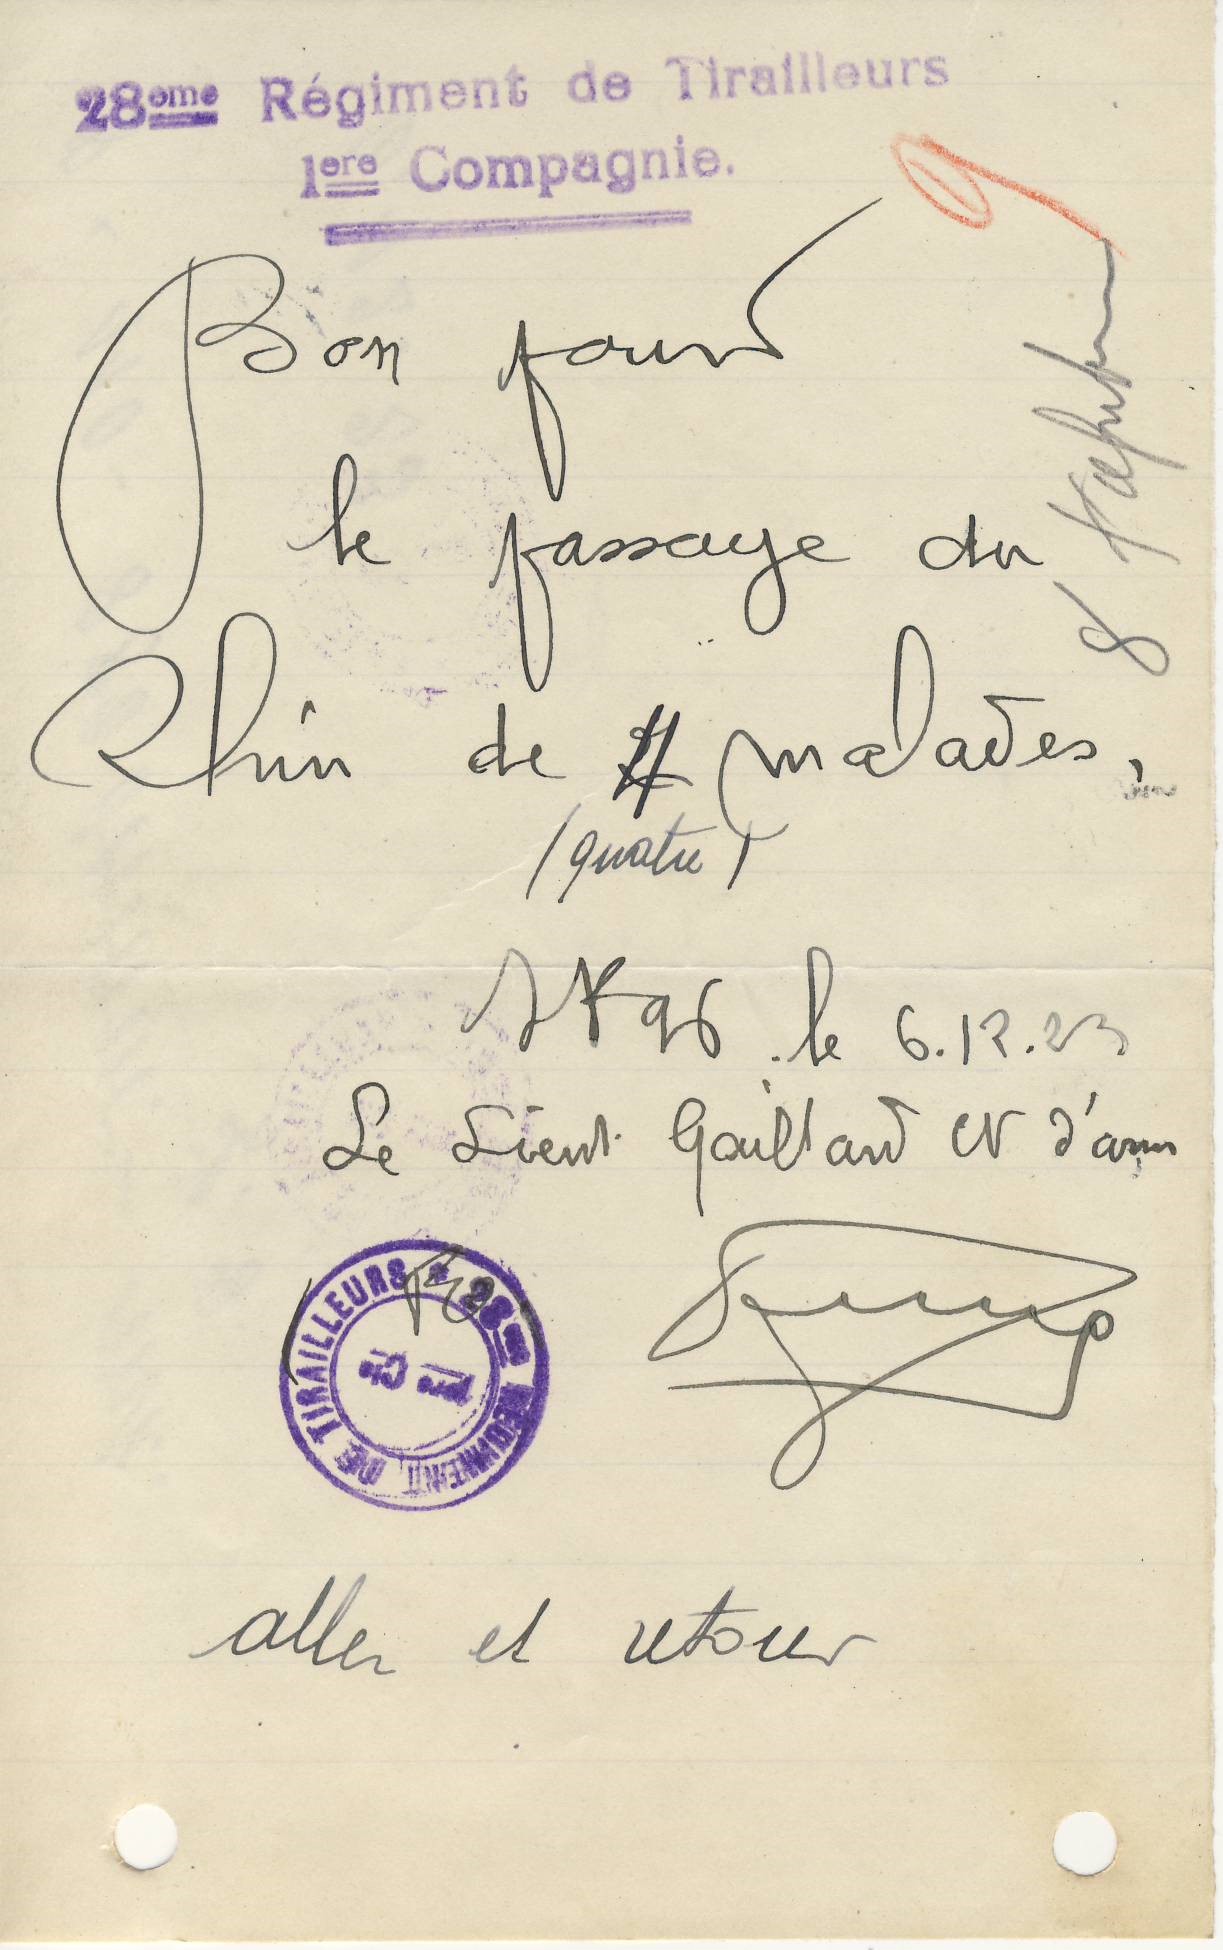 28eme Régiment de Tirailleurs
1ere Compagnie.
Bon pour
le passage du
Rhin de 4 malades,
(quatre)
le 6.12.23
Le Lieut. Gaillard Ct d'arm
28eme REGIMENT DE TIRAILLEURS *
aller et retour
8